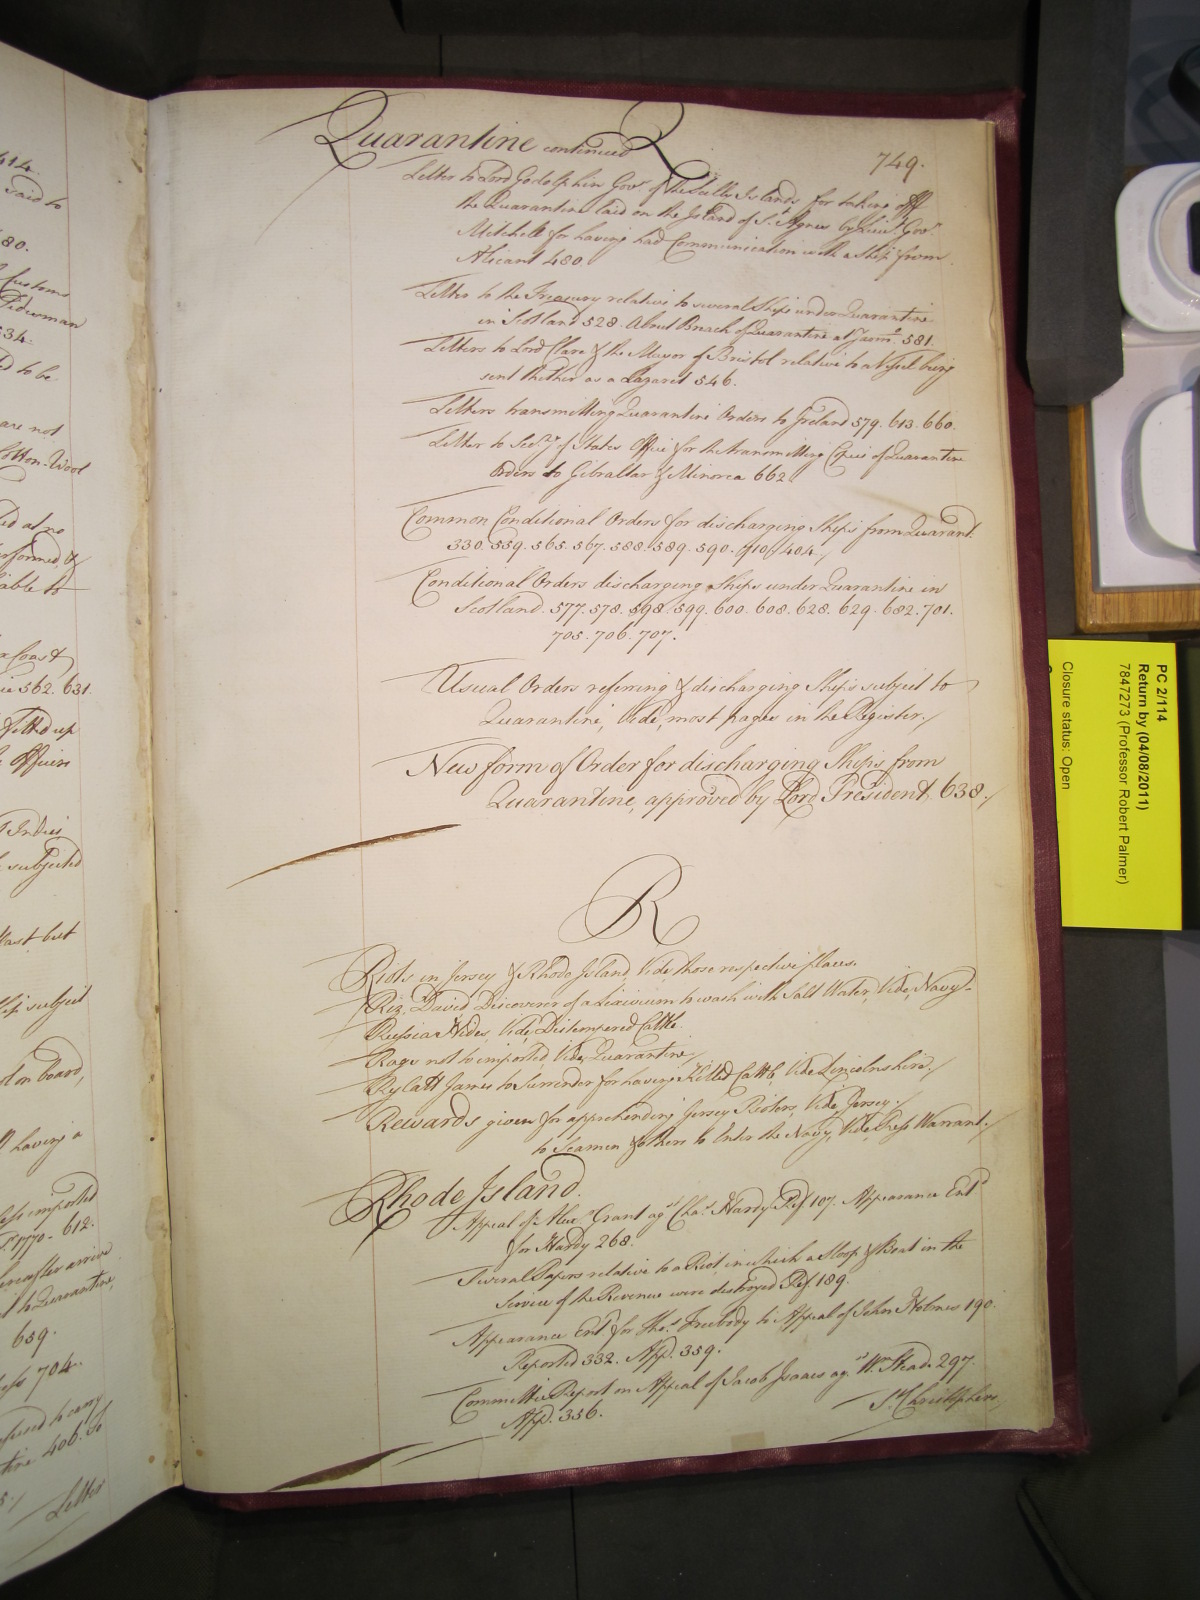 614.
said to
80.
Customs
Tidesman
534.
to be
are not
Cotton-Wool
at no
performed &
liable to
Coast
562. 631.
fitted up
Officers
Indies
subjected
last but
Ship subject
on board,
having a
imported
1770 - 612.
hereafter arrive
to Quarantine,
659.
704.
refused to carry
406. to
Letter
Quarantine continued R
749.
Letter to Lord Godolphin Govr. of the Scilly Islands for taking off
the Quarantine laid on the Island of St. Agnes by Lieut. Govr.
Mitchell for having had Communication with a Ship from
Alicant 480.
Letter to the Treasury relative to several Ships under Quarantine
in Scotland 528. About Breach of Quarantine at Yarmo. 581.
Letters to Lord Clare & the Mayor of Bristol relative to a Vessel being
sent thither as a Lazaret 546.
Letters transmitting Quarantine Orders to Ireland 579. 613. 660.
Letter to Secry. of States Office for the transmitting Copies of Quarantine
Orders to Gibraltar & Minorca 662.
Common Conditional Orders for discharging Ships from Quarant.
330. 559. 565. 567. 588. 589. 590. 404./
Conditional Orders discharging Ships under Quarantine in
Scotland. 577. 578. 598. 599. 600. 608. 628. 629. 682. 701.
705. 706. 707.
Usual Orders referring & discharging Ships subject to
Quarantine, Vide, most pages in the Register./
New form of Order for discharging Ships from
Quarantine, approved by Lord President, 638./
R
Riots in Jersey & Rhode Island, Vide, those respective places.
Riz, David Discoverer of a Lixivium to wash with Salt Water, Vide, Navy.
Russia Hides, Vide, Distempered Cattle.
Rags not to imported Vide, Quarantine/
Rylatt James to Surrender for having Killed Cattle, Vide Lincolnshire./
Rewards given for apprehending Jersey Rioters, Vide, Jersey./
to Seamen & others to Enter the Navy, Vide, Press Warrant./
Rhode Island.
Appeal of Alexr. Grant agt. Chas. Hardy Ref 107. Appearance Entd.
for Hardy 268.
Several Papers relative to a Riot in which a Sloop & Boat in the
Service of the Revenue were destroyed Ref. 189.
Appearance Entd. for Thos. Freebody to Appeal of John Holmes 190.
Reported 332. App. 359.
Committee Report on Appeal of Jacob Isaacs agt. Wm. Mead. 297.
App. 356.
St. Christophers,
PC 2/114
Return by (04/08/2011)
7847273 (Professor Robert Palmer)
Closure status: Open